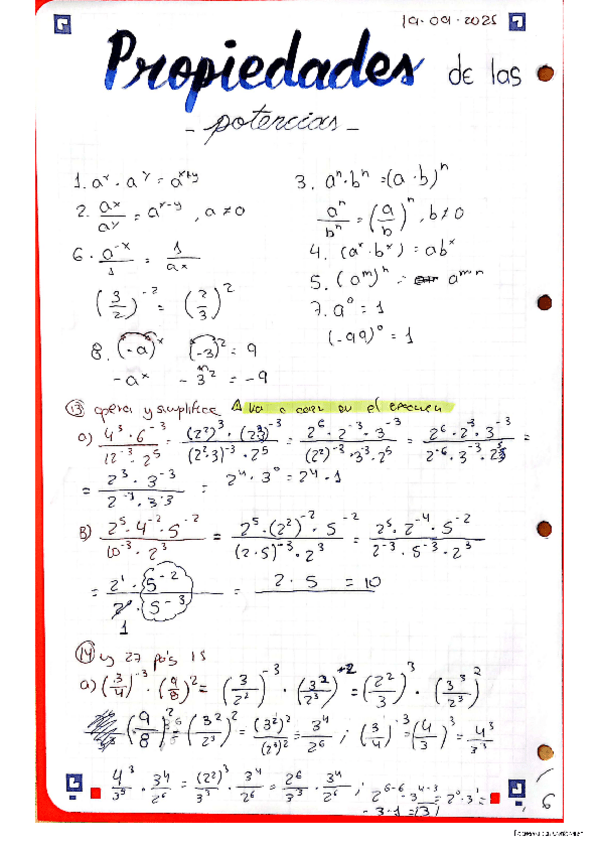 19·09·2025
Propiedades de las
- potencias -
1. aˣ · aʸ = aˣ⁺ʸ
2. aˣ/aʸ = aˣ⁻ʸ , a ≠ 0
6. a⁻ˣ/1 = 1/aˣ
(3/2)⁻² = (2/3)²
3. aⁿ · bⁿ = (a · b)ⁿ
aⁿ/bⁿ = (a/b)ⁿ , b ≠ 0
4. (aˣ · bˣ) = abˣ
5. (aᵐ)ⁿ = aᵐ·ⁿ
7. a⁰ = 1
(-99)⁰ = 1
8. (-a)ˣ (-3)² = 9
-aˣ -3² = -9
13 opera y simplifica va a caer en el examen
a) 4³ · 6⁻³ / 12⁻³ · 2⁵ = (2²)³ · (2·3)⁻³ / (2²·3)⁻³ · 2⁵ = 2⁶ · 2⁻³ · 3⁻³ / (2²)⁻³ · 3⁻³ · 2⁵ = 2⁶ · 2⁻³ · 3⁻³ / 2⁻⁶ · 3⁻³ · 2⁵ =
= 2³ · 3⁻³ / 2⁻¹ · 3⁻³ = 2⁴ · 3⁰ = 2⁴ · 1
B) 2⁵ · 4⁻² · 5⁻² / 10⁻³ · 2³ = 2⁵ · (2²)⁻² · 5⁻² / (2 · 5)⁻³ · 2³ = 2⁵ · 2⁻⁴ · 5⁻² / 2⁻³ · 5⁻³ · 2³
= 2¹ · 5⁻² / 2 · 5⁻³ = 2 · 5 = 10
1
14 y 27 pás 15
a) (3/4)⁻³ · (9/8)² = (3/2²)⁻³ · (3²/2³)⁺² = (2²/3)³ · (3³/2³)²
(9/8)² = (3²/2³)² = (3²)²/(2³)² = 3⁴/2⁶ ; (3/4)⁻³ = (4/3)³ = 4³/3³
4³/3³ · 3⁴/2⁶ = (2²)³/3³ · 3⁴/2⁶ = 2⁶/3³ · 3⁴/2⁶ ; 2⁶⁻⁶ · 3⁴⁻³ = 2⁰ · 3¹ =
= 3 · 1 = (3)
6